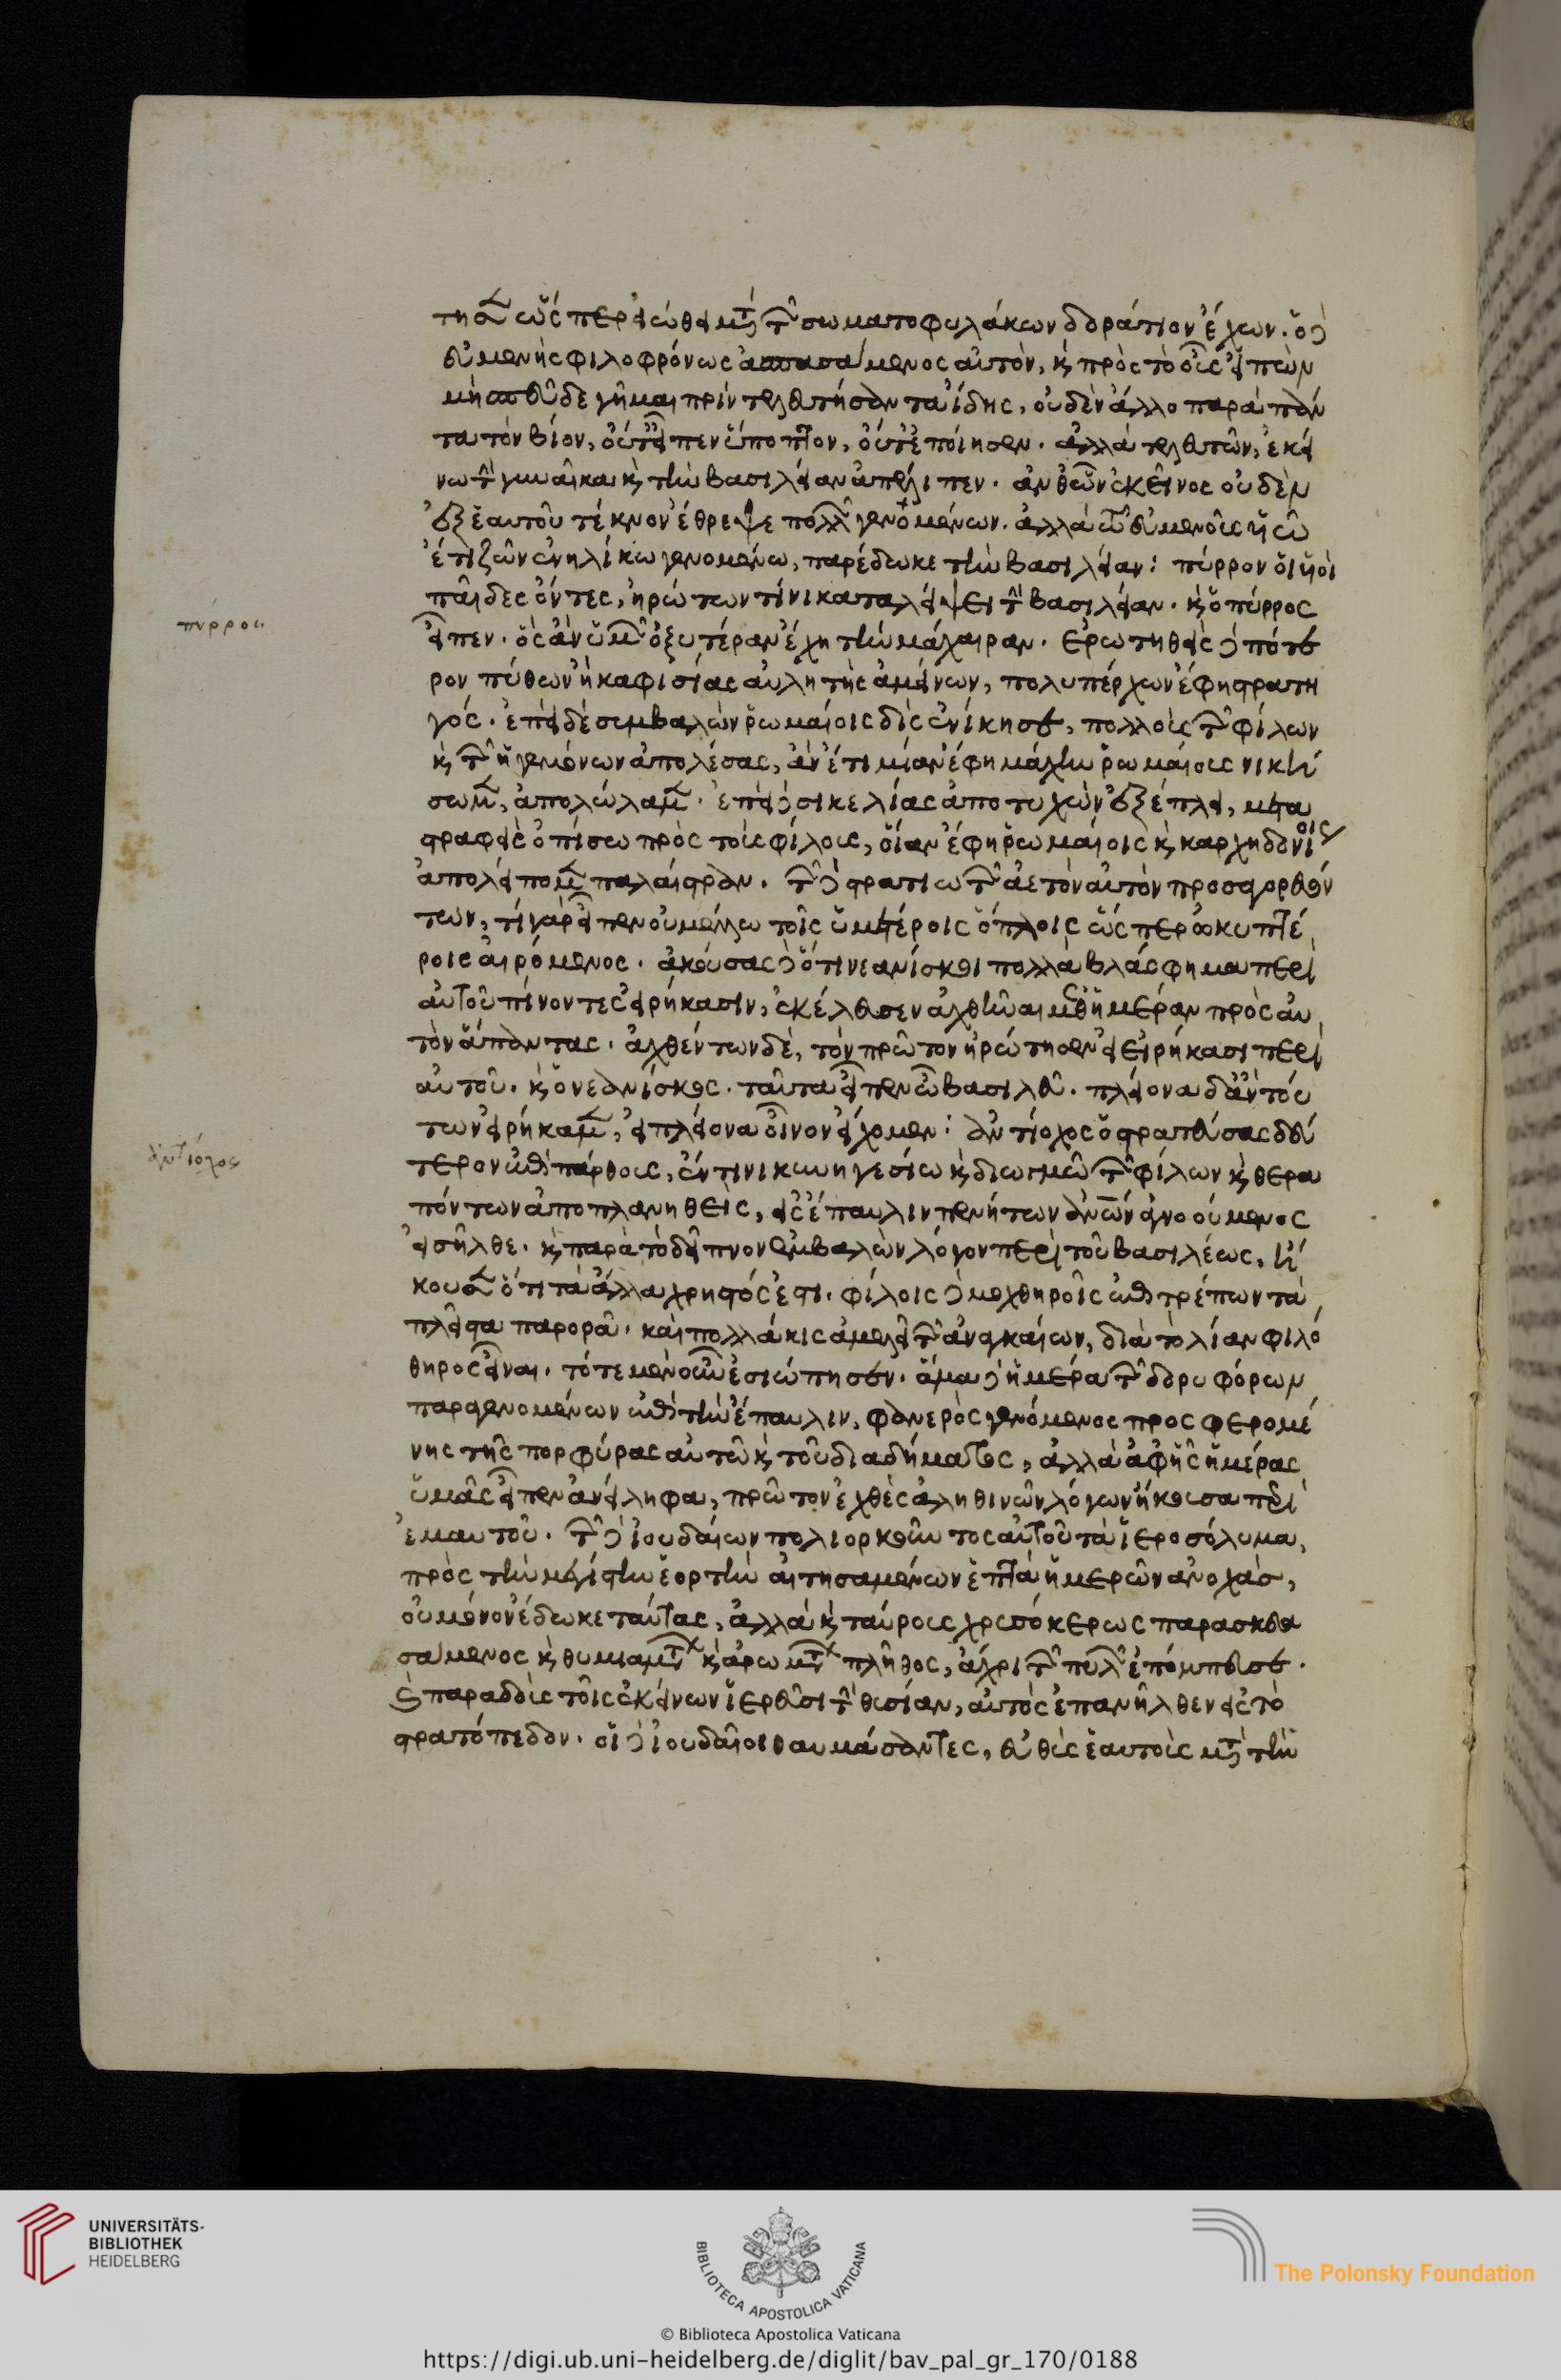 τησεν ὥσπερ εἰώθει μετὰ τῶν σωματοφυλάκων δοράτιον ἔχων. ὁ δὲ
εὐμενὴς φιλοφρόνως ἀσπασάμενος αὐτὸν, καὶ πρὸς τὸ οὖς εἰπὼν
μὴ σπεῦδε γῆμαι πρὶν τελευτήσαντα ἴδης, οὐδὲν ἄλλο παρὰ πάν
τα τὸν βίον, οὔτ' εἶπεν ὕποπτον, οὔτ' ἐποίησεν. ἀλλὰ τελευτῶν, ἐκεί
νω τὴν γυναῖκα καὶ τὴν βασιλείαν ἀπέλιπεν. ἀνθ' ὧν ἐκεῖνος οὐδὲν
ἐξ ἑαυτοῦ τέκνον ἔθρεψε πολλῶν γενομένων. ἀλλὰ τῶ εὐμενοῦς υἱῶ
ἔτι ζῶν ἐνηλίκω γενομένω, παρέδωκε τὴν βασιλείαν: πύρρον οἱ υἱοὶ
παῖδες ὄντες, ἠρώτων τίνι καταλείψει τὴν βασιλείαν. καὶ ὁ πύρρος
εἶπεν. ὃς ἂν ὑμῶν ὀξυτέραν ἔχη τὴν μάχαιραν. ἐρωτηθεὶς δὲ πότε
ρον πύθων ἢ καφισίας αὐλητὴς ἀμείνων, πολυπέρχων ἔφη στρατη
γός. ἐπεὶ δὲ συμβαλὼν ῥωμαίοις δὶς ἐνίκησε, πολλοὺς τῶν φίλων
καὶ τῶν ἡγεμόνων ἀπολέσας, ἂν ἔτι μίαν ἔφη μάχην ῥωμαίους νικὴ
σωμεν, ἀπολώλαμεν. ἐπεὶ δὲ σικελίας ἀποτυχὼν ἐξέπλει, μετα
στραφεὶς ὀπίσω πρὸς τοὺς φίλους, οἵαν ἔφη ῥωμαίοις καὶ καρχηδονίοις
ἀπολείπομεν παλαίστραν. τῶν δὲ στρατιωτῶν ἀετὸν αὐτὸν προσαγορευόν
των, τί γὰρ εἶπεν οὐ μέλλω τοῖς ὑμετέροις ὅπλοις ὥσπερ ὠκυπτέ
ροις αἰρόμενος. ἀκούσας δὲ ὅτι νεανίσκοι πολλὰ βλάσφημα περὶ
αὐτοῦ πίνοντες εἰρήκασιν, ἐκέλευσεν ἀχθῆναι μεθ' ἡμέραν πρὸς αὐ
τὸν ἅπαντας. ἀχθέντων δὲ, τὸν πρῶτον ἠρώτησεν εἰ εἰρήκασι περὶ
αὐτοῦ. καὶ ὁ νεανίσκος. ταῦτα εἶπεν ὦ βασιλεῦ. πλείονα δ' ἂν τού
των εἰρήκαμεν, εἰ πλείονα οἶνον εἴχομεν: ἀντίοχος ὁ στρατεύσας δεύ
τερον ἐπὶ πάρθους, ἔν τινι κυνηγεσίω καὶ διωγμῶ τῶν φίλων καὶ θερα
πόντων ἀποπλανηθεὶς, εἰς ἔπαυλιν πενήτων ἀνθρώπων ἀγνοούμενος
εἰσῆλθε. καὶ παρὰ τὸ δεῖπνον ἐμβαλὼν λόγον περὶ τοῦ βασιλέως, ἤ
κουσεν ὅτι τὰ ἄλλα χρηστός ἐστι. φίλοις δὲ μοχθηροῖς ἐπιτρέπων τὰ
πλεῖστα παρορᾶ. καὶ πολλάκις ἀμελεῖ τῶν ἀναγκαίων, διὰ τὸ λίαν φιλό
θηρος εἶναι. τότε μὲν οὖν ἐσιώπησεν. ἅμα δὲ ἡμέρα τῶν δορυφόρων
παραγενομένων ἐπὶ τὴν ἔπαυλιν, φανερὸς γενόμενος προσφερομέ
νης τῆς πορφύρας αὐτῶ καὶ τοῦ διαδήματος, ἀλλὰ ἀφ' ἧς ἡμέρας
ὑμᾶς εἶπεν ἀνείληφα, πρῶτον ἐχθὲς ἀληθινῶν λόγων ἤκουσα περὶ
ἐμαυτοῦ. τῶν δὲ ἰουδαίων πολιορκοῦντος αὐτοῦ τὰ ἱεροσόλυμα,
πρὸς τὴν μεγίστην ἑορτὴν αἰτησαμένων ἑπτὰ ἡμερῶν ἀνοχὰς,
οὐ μόνον ἔδωκε ταύτας, ἀλλὰ καὶ ταύρους χρυσόκερως παρασκευα
σάμενος καὶ θυμιαμάτων καὶ ἀρωμάτων πλῆθος, ἄχρι τῶν πυλῶν ἐπόμπευσε.
καὶ παραδοὺς τοῖς ἐκείνων ἱερεῦσι τὴν θυσίαν, αὐτὸς ἐπανῆλθεν εἰς τὸ
στρατόπεδον. οἱ δὲ ἰουδαῖοι θαυμάσαντες, εὐθὺς ἑαυτοὺς μετὰ τὴν
πύρρου
ἀντίοχος
UNIVERSITÄTS-
BIBLIOTHEK
HEIDELBERG
BIBLIOTECA APOSTOLICA VATICANA
The Polonsky Foundation
© Biblioteca Apostolica Vaticana
https://digi.ub.uni-heidelberg.de/diglit/bav_pal_gr_170/0188